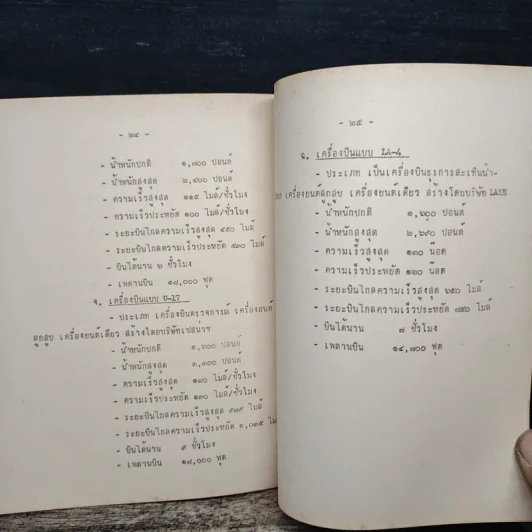 - ๒๔ -
- น้ำหนักปกติ ๑,๗๐๐ ปอนด์
- น้ำหนักสูงสุด ๒,๔๐๐ ปอนด์
- ความเร็วสูงสุด ๑๑๕ ไมล์/ชั่วโมง
- ความเร็วประหยัด ๑๐๐ ไมล์/ชั่วโมง
- ระยะบินไกลความเร็วสูงสุด ไมล์
- ระยะบินไกลความเร็วประหยัด ไมล์
- บินได้นาน ๖ ชั่วโมง
- เพดานบิน ๑๘,๐๐๐ ฟุต
เครื่องบินแบบ U-17
- ประเภท เป็นเครื่องบินตรวจการณ์ เครื่องยนต์
ลูกสูบ เครื่องยนต์เดียว สร้างโดยบริษัทเซสน่าฯ
- น้ำหนักปกติ ปอนด์
- น้ำหนักสูงสุด ๓,๓๐๐ ปอนด์
- ความเร็วสูงสุด ไมล์/ชั่วโมง
- ความเร็วประหยัด ๑๓๐ ไมล์/ชั่วโมง
- ระยะบินไกลความเร็วสูงสุด ไมล์
- ระยะบินไกลความเร็วประหยัด ๑,๐๓๕ ไมล์
- บินได้นาน ชั่วโมง
- เพดานบิน ๑๘,๐๐๐ ฟุต
- ๒๕ -
เครื่องบินแบบ LA-4
- ประเภท เป็นเครื่องบินธุรการสะเทินน้ำ-
เครื่องยนต์ลูกสูบ เครื่องยนต์เดียว สร้างโดยบริษัท LAKE
- น้ำหนักปกติ ๑,๖๐๐ ปอนด์
- น้ำหนักสูงสุด ๒,๖๙๐ ปอนด์
- ความเร็วสูงสุด ๑๓๐ น๊อต
- ความเร็วประหยัด ๑๒๐ น๊อต
- ระยะบินไกลความเร็วสูงสุด ๖๕๐ ไมล์
- ระยะบินไกลความเร็วประหยัด ไมล์
- บินได้นาน ๗ ชั่วโมง
- เพดานบิน ๑๔,๗๐๐ ฟุต